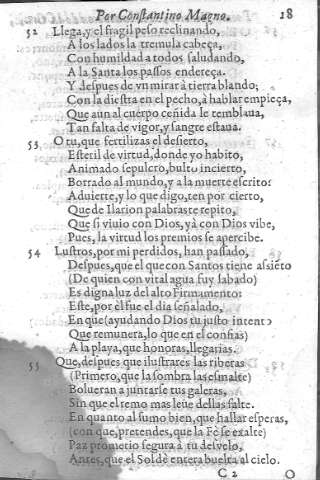 Por Constantino Magno. 18
52 Llega, y el fragil peso reclinando,
A los lados la tremula cabeça,
Con humildad a todos saludando,
A la Santa los passos endereça.
Y despues de vn mirar à tierra blando;
Con la diestra en el pecho, à hablar empieça,
Que aun al cuerpo ceñida le temblaua,
Tan falta de vigor, y sangre estaua.
53 O tu, que fertilizas el desierto,
Esteril de virtud, donde yo habito,
Animado sepulcro, bulto incierto,
Borrado al mundo, y a la muerte escrito:
Aduierte, y lo que digo, ten por cierto,
Que de Ilarion palabras te repito,
Que si viuio con Dios, yà con Dios vibe,
Pues, la virtud los premios se apercibe.
54 Lustros, por mi perdidos, han passado,
Despues, que el que con Santos tiene assiẽto
(De quien con vital agua fuy labado)
Es digna luz del alto Firmamento:
Este, por èl fue el dia señalado,
En que (ayudando Dios tu justo intento
Que remunera, lo que en el confias)
A la playa, que honoras, llegarias.
55 Que, despues que ilustrares las riberas
(Primero, que la sombra las esmalte)
Bolueran a juntarse tus galeras,
Sin que el remo mas leue dellas falte.
En quanto al sumo bien, que hallar esperas,
(con que, pretendes, que la Fè se exalte)
Paz prometio segura à tu desvelo,
Antes, que el Sol dè entera buelta al cielo.
C 2 O